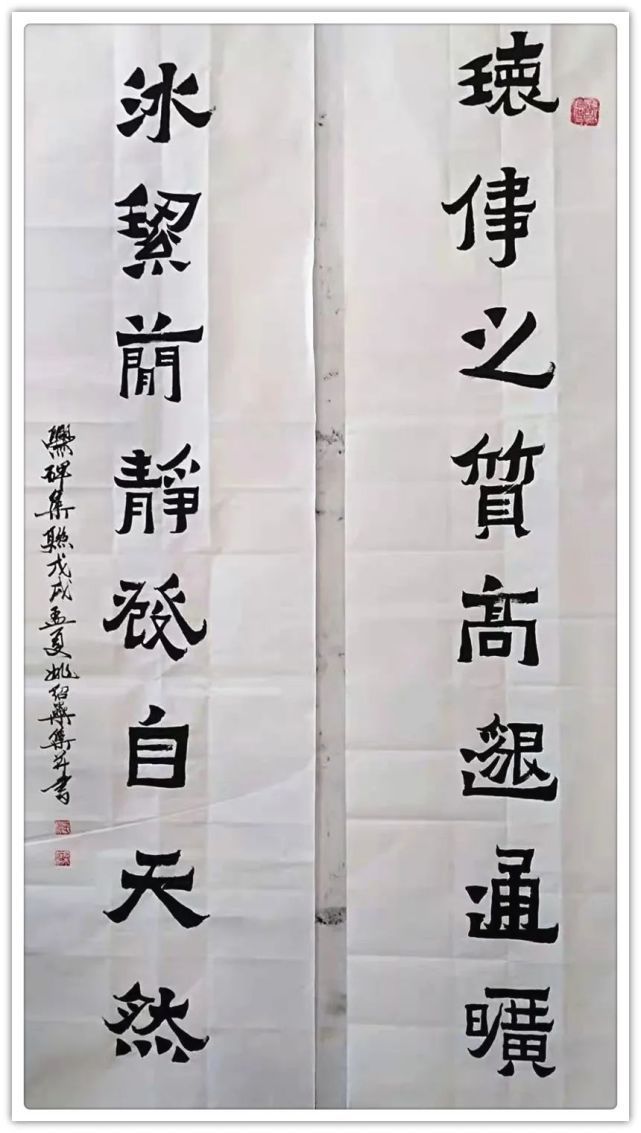 瓌偉之質高邈通曠
冰絜簡靜發自天然
爨碑集聯戊戌孟夏姚紹集并書